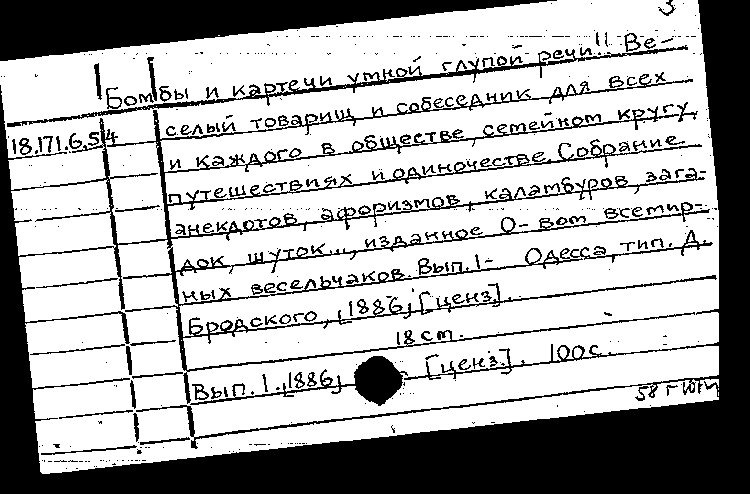 3
Бомбы и картечи умной глупой речи!! Ве-
18.171.6.54 селый товарищ и собеседник для всех
и каждого в обществе, семейном кругу,
путешествиях и одиночестве. Собрание
анекдотов, афоризмов, каламбуров, зага-
док, шуток..., изданное О-вом всемир-
ных весельчаков. Вып. 1- Одесса, тип. Д.
Бродского, [1886] [ценз].
18 см.
Вып. 1. [1886] [ценз.]. 100 с.
58